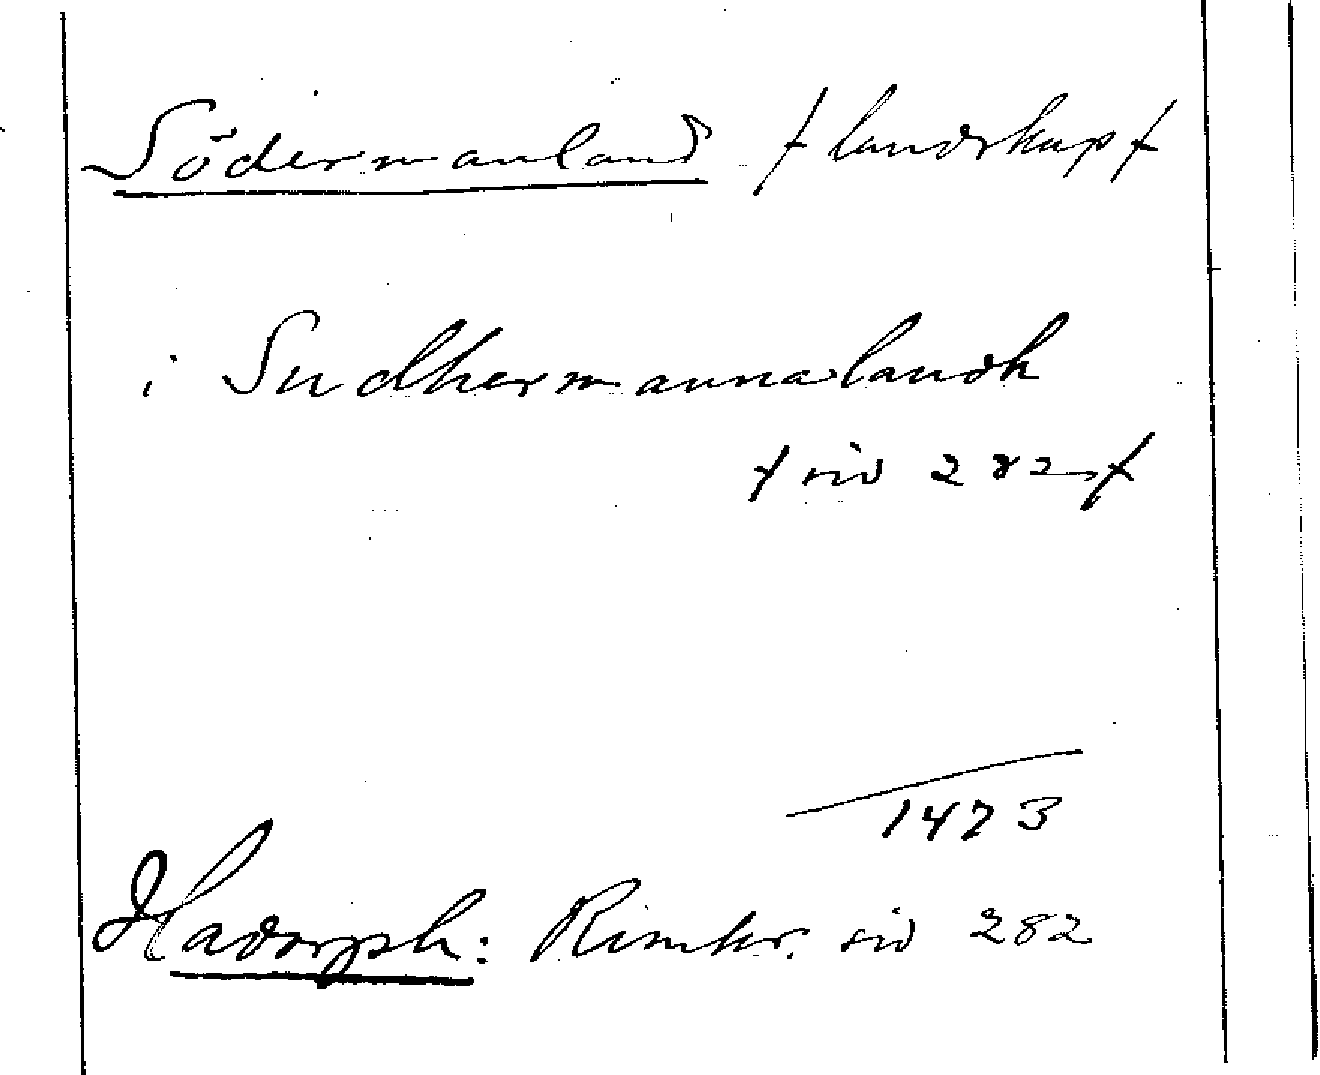 Södermanland /landskap/
i Sudhermannalandh
/sid 282/
1473
Hadorph: Rimkr. sid 282